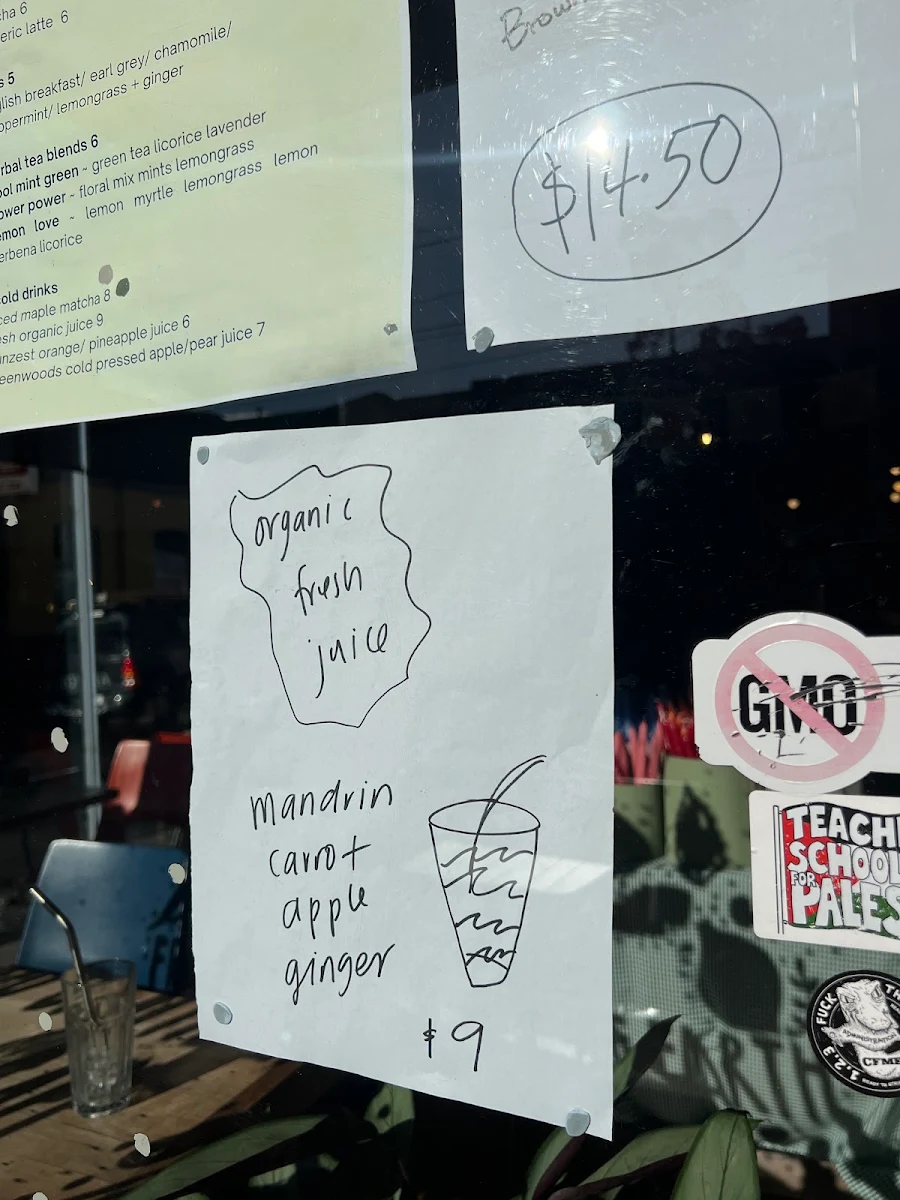 cha 6
eric latte 6
s 5
lish breakfast/ earl grey/ chamomile/
ppermint/ lemongrass + ginger
rbal tea blends 6
ool mint green ~ green tea licorice lavender
ower power ~ floral mix mints lemongrass
emon love ~ lemon myrtle lemongrass lemon
erbena licorice
old drinks
ced maple matcha 8
esh organic juice 9
nzest orange/ pineapple juice 6
eenwoods cold pressed apple/pear juice 7
Brow
$14.50
organic
fresh
juice
mandrin
carrot
apple
ginger
$9
GMO
TEACH
SCHOOL
FOR
PALES
FUCK
ADMINISTRATION
CFME
1,2,3